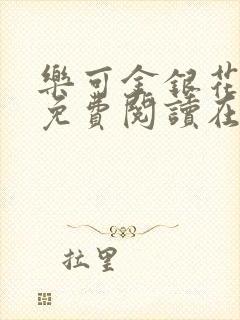 樂可金銀花
免費閱讀在
拉里